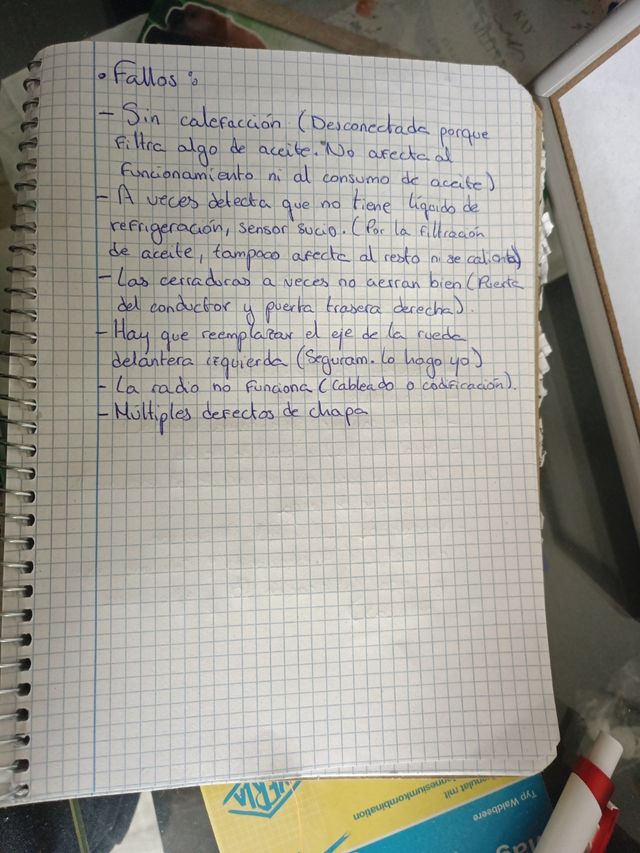 • Fallos:
- Sin calefacción (Desconectada porque
filtra algo de aceite. No afecta al
funcionamiento ni al consumo de aceite)
- A veces detecta que no tiene líquido de
refrigeración, sensor sucio. (Por la filtración
de aceite, tampoco afecta al resto ni se calienta)
- Las cerraduras a veces no cierran bien (Puerta
del conductor y puerta trasera derecha).
- Hay que reemplazar el eje de la rueda
delantera izquierda (Seguram. lo hago yo)
- La radio no funciona (Cableado o codificación).
- Múltiples defectos de chapa
Typ Waldbeere